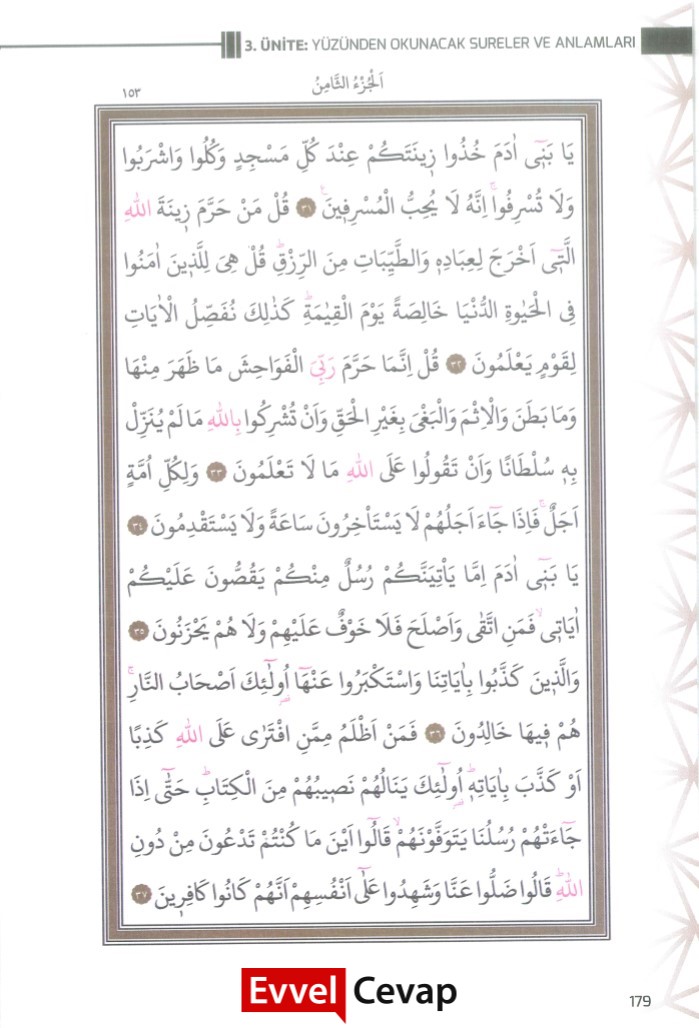 3. ÜNİTE: YÜZÜNDEN OKUNACAK SURELER VE ANLAMLARI
اَلْجُزْءُ الثَّامِنُ
١٥٣
يَا بَنٖٓى اٰدَمَ خُذُوا زٖينَتَكُمْ عِنْدَ كُلِّ مَسْجِدٍ وَكُلُوا وَاشْرَبُوا
وَلَا تُسْرِفُواۚ اِنَّهُ لَا يُحِبُّ الْمُسْرِفٖينَۚ ﴿٣١﴾ قُلْ مَنْ حَرَّمَ زٖينَةَ اللّٰهِ
الَّتٖٓى اَخْرَجَ لِعِبَادِهٖ وَالطَّيِّبَاتِ مِنَ الرِّزْقِؕ قُلْ هِىَ لِلَّذٖينَ اٰمَنُوا
فِى الْحَيٰوةِ الدُّنْيَا خَالِصَةً يَوْمَ الْقِيٰمَةِؕ كَذٰلِكَ نُفَصِّلُ الْاٰيَاتِ
لِقَوْمٍ يَعْلَمُونَ ﴿٣٢﴾ قُلْ اِنَّمَا حَرَّمَ رَبِّىَ الْفَوَاحِشَ مَا ظَهَرَ مِنْهَا
وَمَا بَطَنَ وَالْاِثْمَ وَالْبَغْىَ بِغَيْرِ الْحَقِّ وَاَنْ تُشْرِكُوا بِاللّٰهِ مَا لَمْ يُنَزِّلْ
بِهٖ سُلْطَانًا وَاَنْ تَقُولُوا عَلَى اللّٰهِ مَا لَا تَعْلَمُونَ ﴿٣٣﴾ وَلِكُلِّ اُمَّةٍ
اَجَلٌۚ فَاِذَا جَٓاءَ اَجَلُهُمْ لَا يَسْتَأْخِرُونَ سَاعَةً وَلَا يَسْتَقْدِمُونَ ﴿٣٤﴾
يَا بَنٖٓى اٰدَمَ اِمَّا يَأْتِيَنَّكُمْ رُسُلٌ مِنْكُمْ يَقُصُّونَ عَلَيْكُمْ
اٰيَاتٖىۙ فَمَنِ اتَّقٰى وَاَصْلَحَ فَلَا خَوْفٌ عَلَيْهِمْ وَلَا هُمْ يَحْزَنُونَ ﴿٣٥﴾
وَالَّذٖينَ كَذَّبُوا بِاٰيَاتِنَا وَاسْتَكْبَرُوا عَنْهَٓا اُولٰٓئِكَ اَصْحَابُ النَّارِۚ
هُمْ فٖيهَا خَالِدُونَ ﴿٣٦﴾ فَمَنْ اَظْلَمُ مِمَّنِ افْتَرٰى عَلَى اللّٰهِ كَذِبًا
اَوْ كَذَّبَ بِاٰيَاتِهٖؕ اُولٰٓئِكَ يَنَالُهُمْ نَصٖيبُهُمْ مِنَ الْكِتَابِؕ حَتّٰٓى اِذَا
جَٓاءَتْهُمْ رُسُلُنَا يَتَوَفَّوْنَهُمْۙ قَالُٓوا اَيْنَ مَا كُنْتُمْ تَدْعُونَ مِنْ دُونِ
اللّٰهِؕ قَالُوا ضَلُّوا عَنَّا وَشَهِدُوا عَلٰٓى اَنْفُسِهِمْ اَنَّهُمْ كَانُوا كَافِرٖينَ ﴿٣٧﴾
Evvel Cevap
179